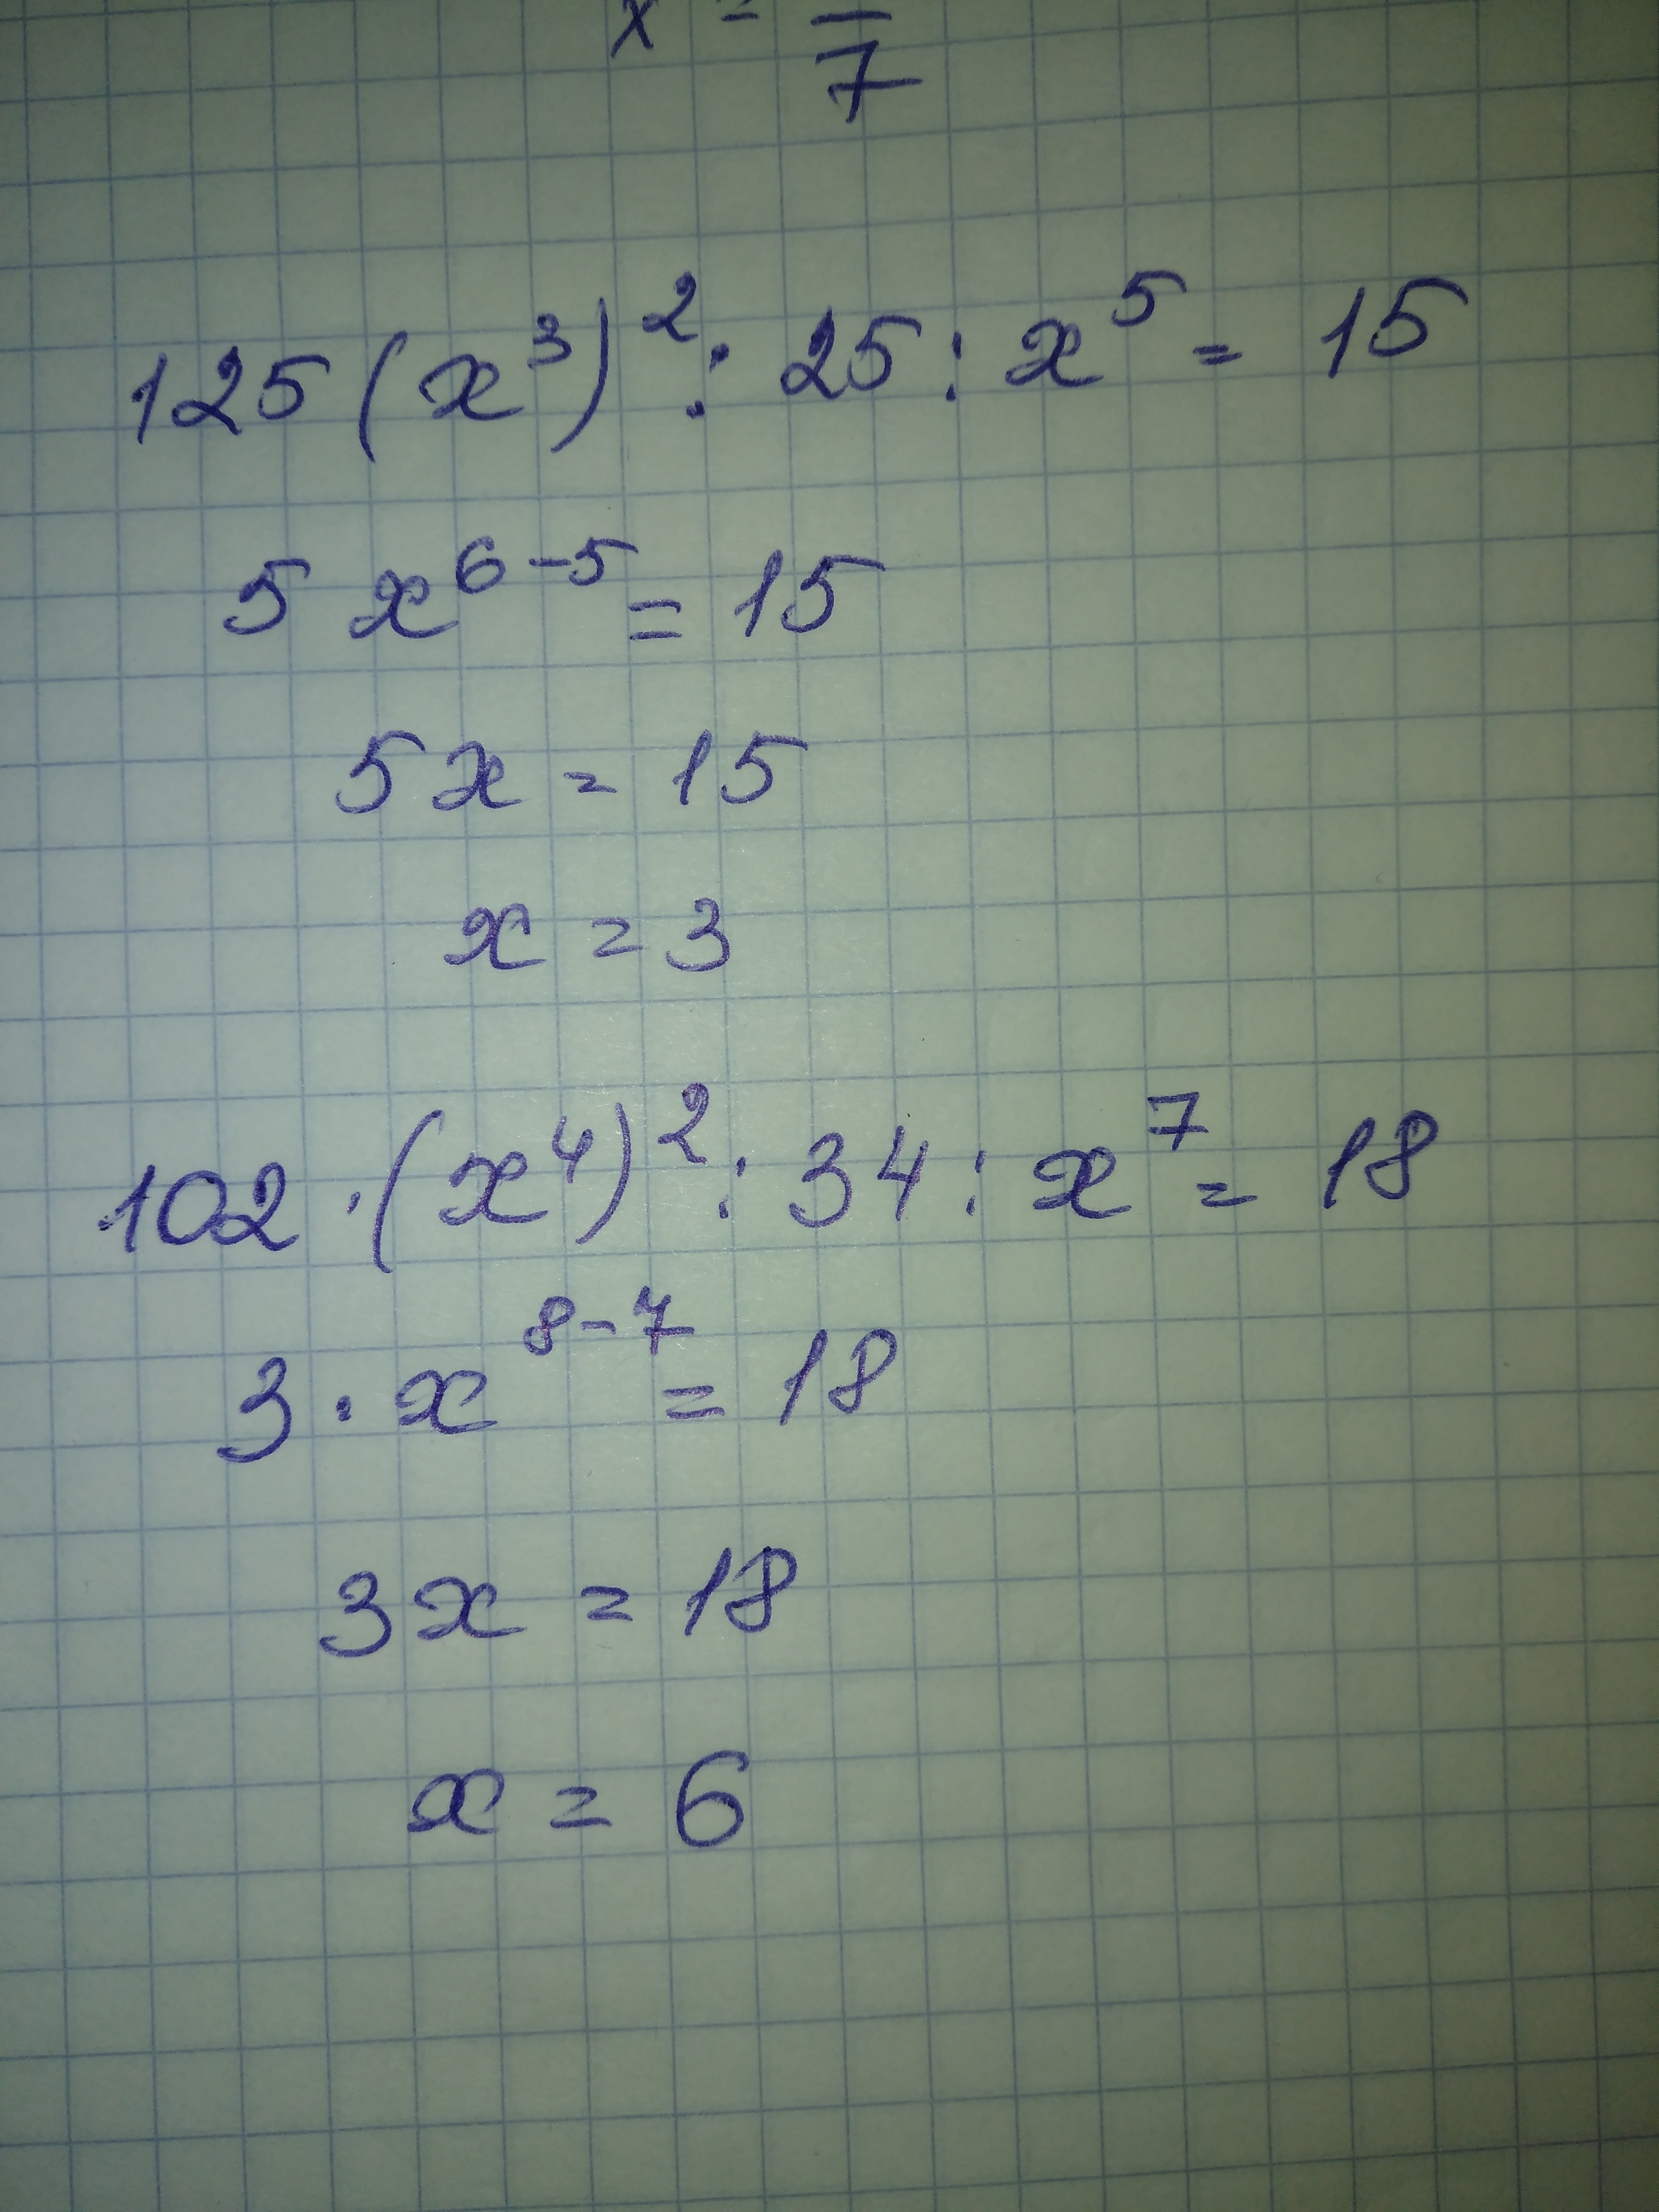 x = —/7
125(x³)² : 25 : x⁵ = 15
5 x⁶⁻⁵ = 15
5x = 15
x = 3
102 · (x⁴)² : 34 : x⁷ = 18
3 · x⁸⁻⁷ = 18
3x = 18
x = 6